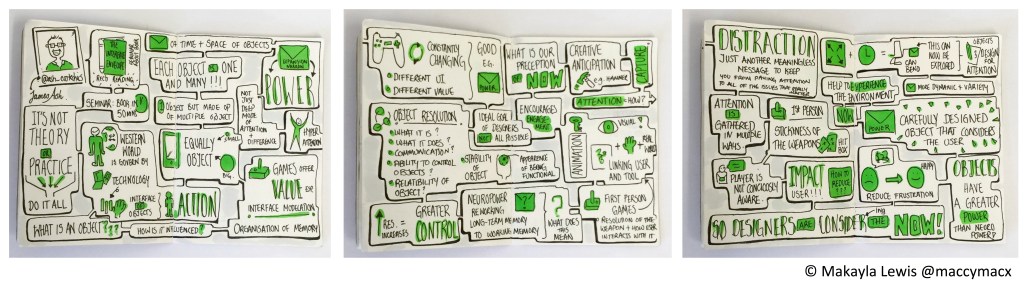 THE INTERFACE ENVELOPE
James Ash
SEMINAR: BOOK IN
50 MINS
IT'S NOT
THEORY
OR
PRACTICE
DO IT ALL
OF TIME + SPACE OF OBJECTS
EACH OBJECT IS ONE
AND MANY !!!
OBJECT BUT MADE UP
OF MULTIPLE OBJECT
POWER
NOT
JUST
DEEP
MODE OF
ATTENTION
+
DIFFERENCE
HYPER
ATTENTION
WESTERN
WORLD
IS GOVERN BY
TECHNOLOGY
INTERFACE
OBJECTS
EQUALLY
OBJECT
SMALL
BIG
GAMES
OFFER
VALUE
INTERFACE MODULATION
ACTION
WHAT IS AN OBJECT???
HOW IS IT INFLUENCED?
ORGANISATION OF MEMORY
CONSTANTLY
CHANGING
DIFFERENT UI
DIFFERENT VALUE
GOOD
E.G.
POWER
WHAT IS OUR
PRECEPTION
OF NOW
CREATIVE
ANTICIPATION
E.G. HAMMER
CAPTURE
ATTENTION = HOW?
OBJECT RESOLUTION
WHAT IT IS?
WHAT IT DOES?
COMMUNICATION?
ABILITY TO CONTROL
OBJECTS?
RELIABILITY OF
OBJECT?
ENCOURAGES
ENGAGEMENT
IDEAL GOAL OF
DESIGNERS
NOT ALL POSSIBLE
STABILITY
OBJECT
APPEARANCE
OF BEING
FUNCTIONAL
ANIMATION
VISUAL
LINKING USER
AND TOOL
RES. =
INCREASES
GREATER
CONTROL
NEUROPOWER
REWORKING
LONG-TERM MEMORY
TO WORKING MEMORY
?
WHAT DOES
THIS
MEAN
FIRST PERSON
GAMES
RESOLUTION OF THE
WEAPON + HOW USER
INTERACTS WITH IT
DISTRACTION
JUST ANOTHER MEANINGLESS
MESSAGE TO KEEP
YOU FROM PAYING ATTENTION
TO ALL OF THE ISSUES THAT REALLY
MATTER
CAN
BEND
THIS CAN
NOW BE
EXPLORED
OBJECTS
DESIGN
FOR
ATTENTION
HELP TO EXPERIENCE
THE ENVIRONMENT
MORE DYNAMIC + VARIETY
ATTENTION
IS
GATHERED
IN MULTIPLE
WAYS
1ST PERSON
STICKNESS OF
THE WEAPONS
NOW
HIT
BOX
POWER
CAREFULLY DESIGNED
OBJECT THAT CONSIDERS
THE USER
PLAYER IS
NOT CONCIOUSLY
AWARE
IMPACT
USER!!!
HOW TO
REDUCE
HAPPY
REDUCE FRUSTRATION
OBJECTS
HAVE
A GREATER
POWER
THAN NEURO
POWER?
SO DESIGNERS ARE CONSIDERING THE NOW!
© Makayla Lewis @maccymacx